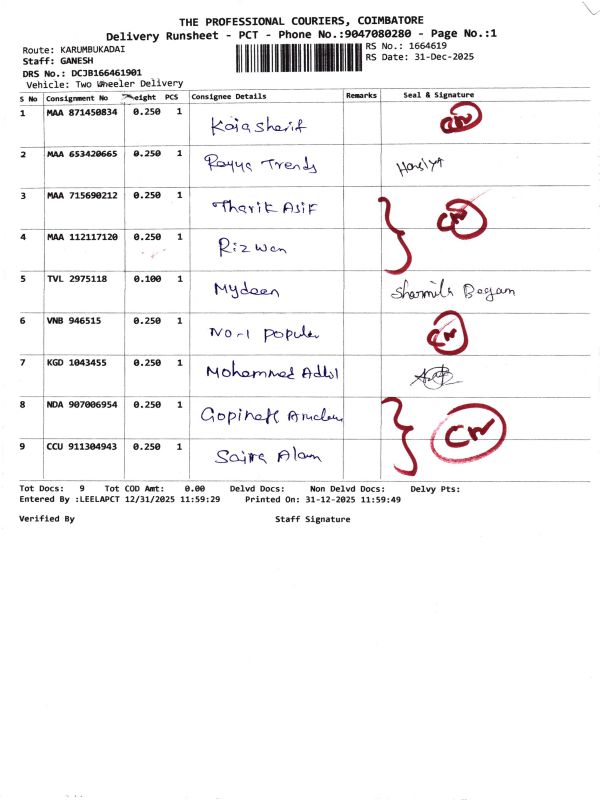 THE PROFESSIONAL COURIERS, COIMBATORE
Delivery Runsheet - PCT - Phone No.:9047080280 - Page No.:1
Route: KARUMBUKADAI RS No.: 1664619
Staff: GANESH RS Date: 31-Dec-2025
DRS No.: DCJB166461901
Vehicle: Two Wheeler Delivery
S No Consignment No Weight PCS Consignee Details Remarks Seal & Signature
1 MAA 871450834 0.250 1 Kaja sherif CN
2 MAA 653420665 0.250 1 Rayya Trends
3 MAA 715690212 0.250 1 Tharik Asif CN
4 MAA 112117120 0.250 1 Rizwan
5 TVL 2975118 0.100 1 Mydeen Sharmila Begam
6 VNB 946515 0.250 1 No-1 popular CN
7 KGD 1043455 0.250 1 Mohammed Adhil
8 NDA 907006954 0.250 1 Gopinath CN
9 CCU 911304943 0.250 1 Saira Alam
Tot Docs: 9 Tot COD Amt: 0.00 Delvd Docs: Non Delvd Docs: Delvy Pts:
Entered By :LEELAPCT 12/31/2025 11:59:29 Printed On: 31-12-2025 11:59:49
Verified By Staff Signature